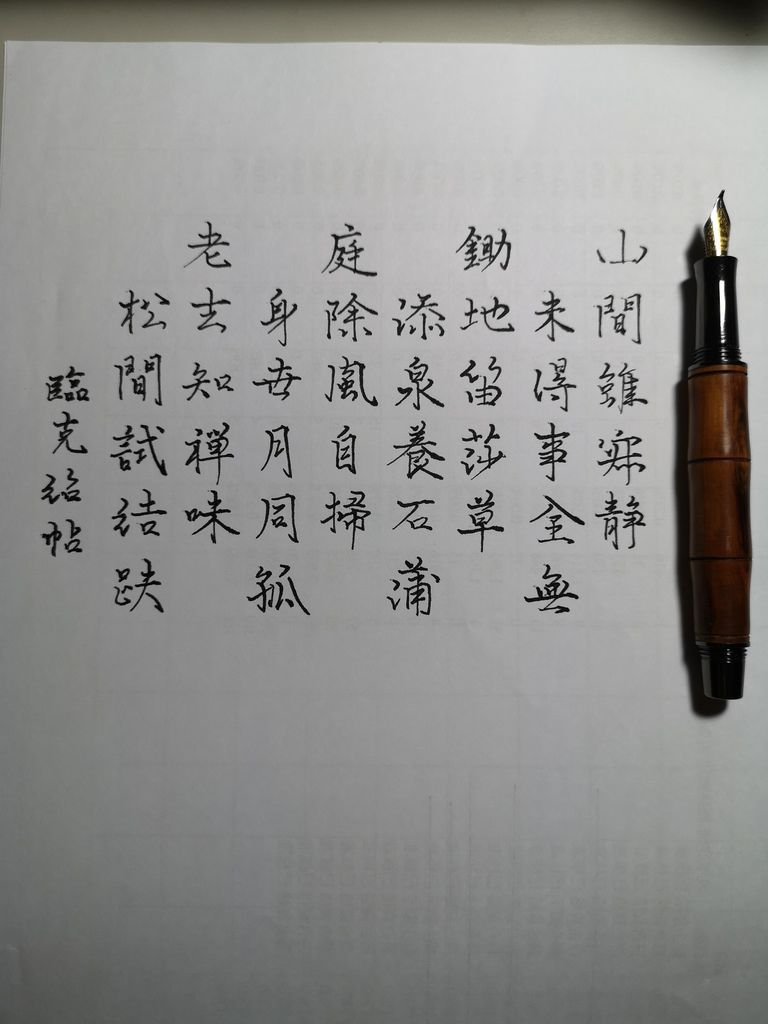 山間雖寂静
未得事全無
鋤地留莎草
添泉養石蒲
庭除風自掃
身世月同孤
老去知禅味
松間試結趺
臨克紹帖